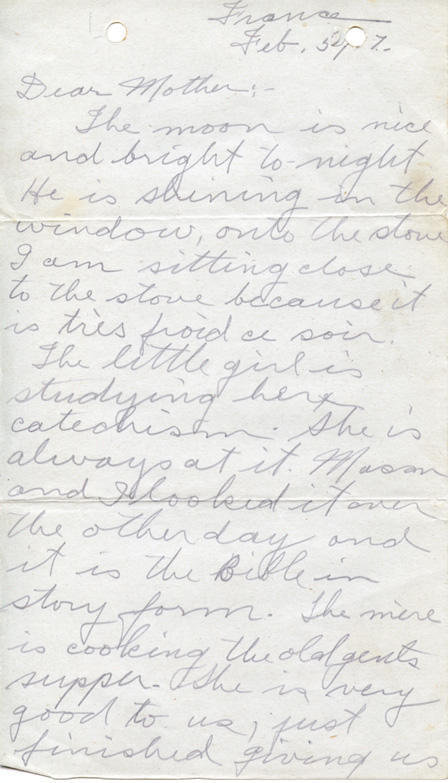 France
Feb.
Dear Mother:-
The moon is nice
and bright to-night
He is shining in the
window, onto the stove
I am sitting close
to the stove because it
is très froid ce soir.
The little girl is
studying her
catechism. She is
always at it. Mason
and I looked it over
the other day and
it is the Bible in
story form. The mère
is cooking the old gents
supper. She is very
good to us, just
finished giving us